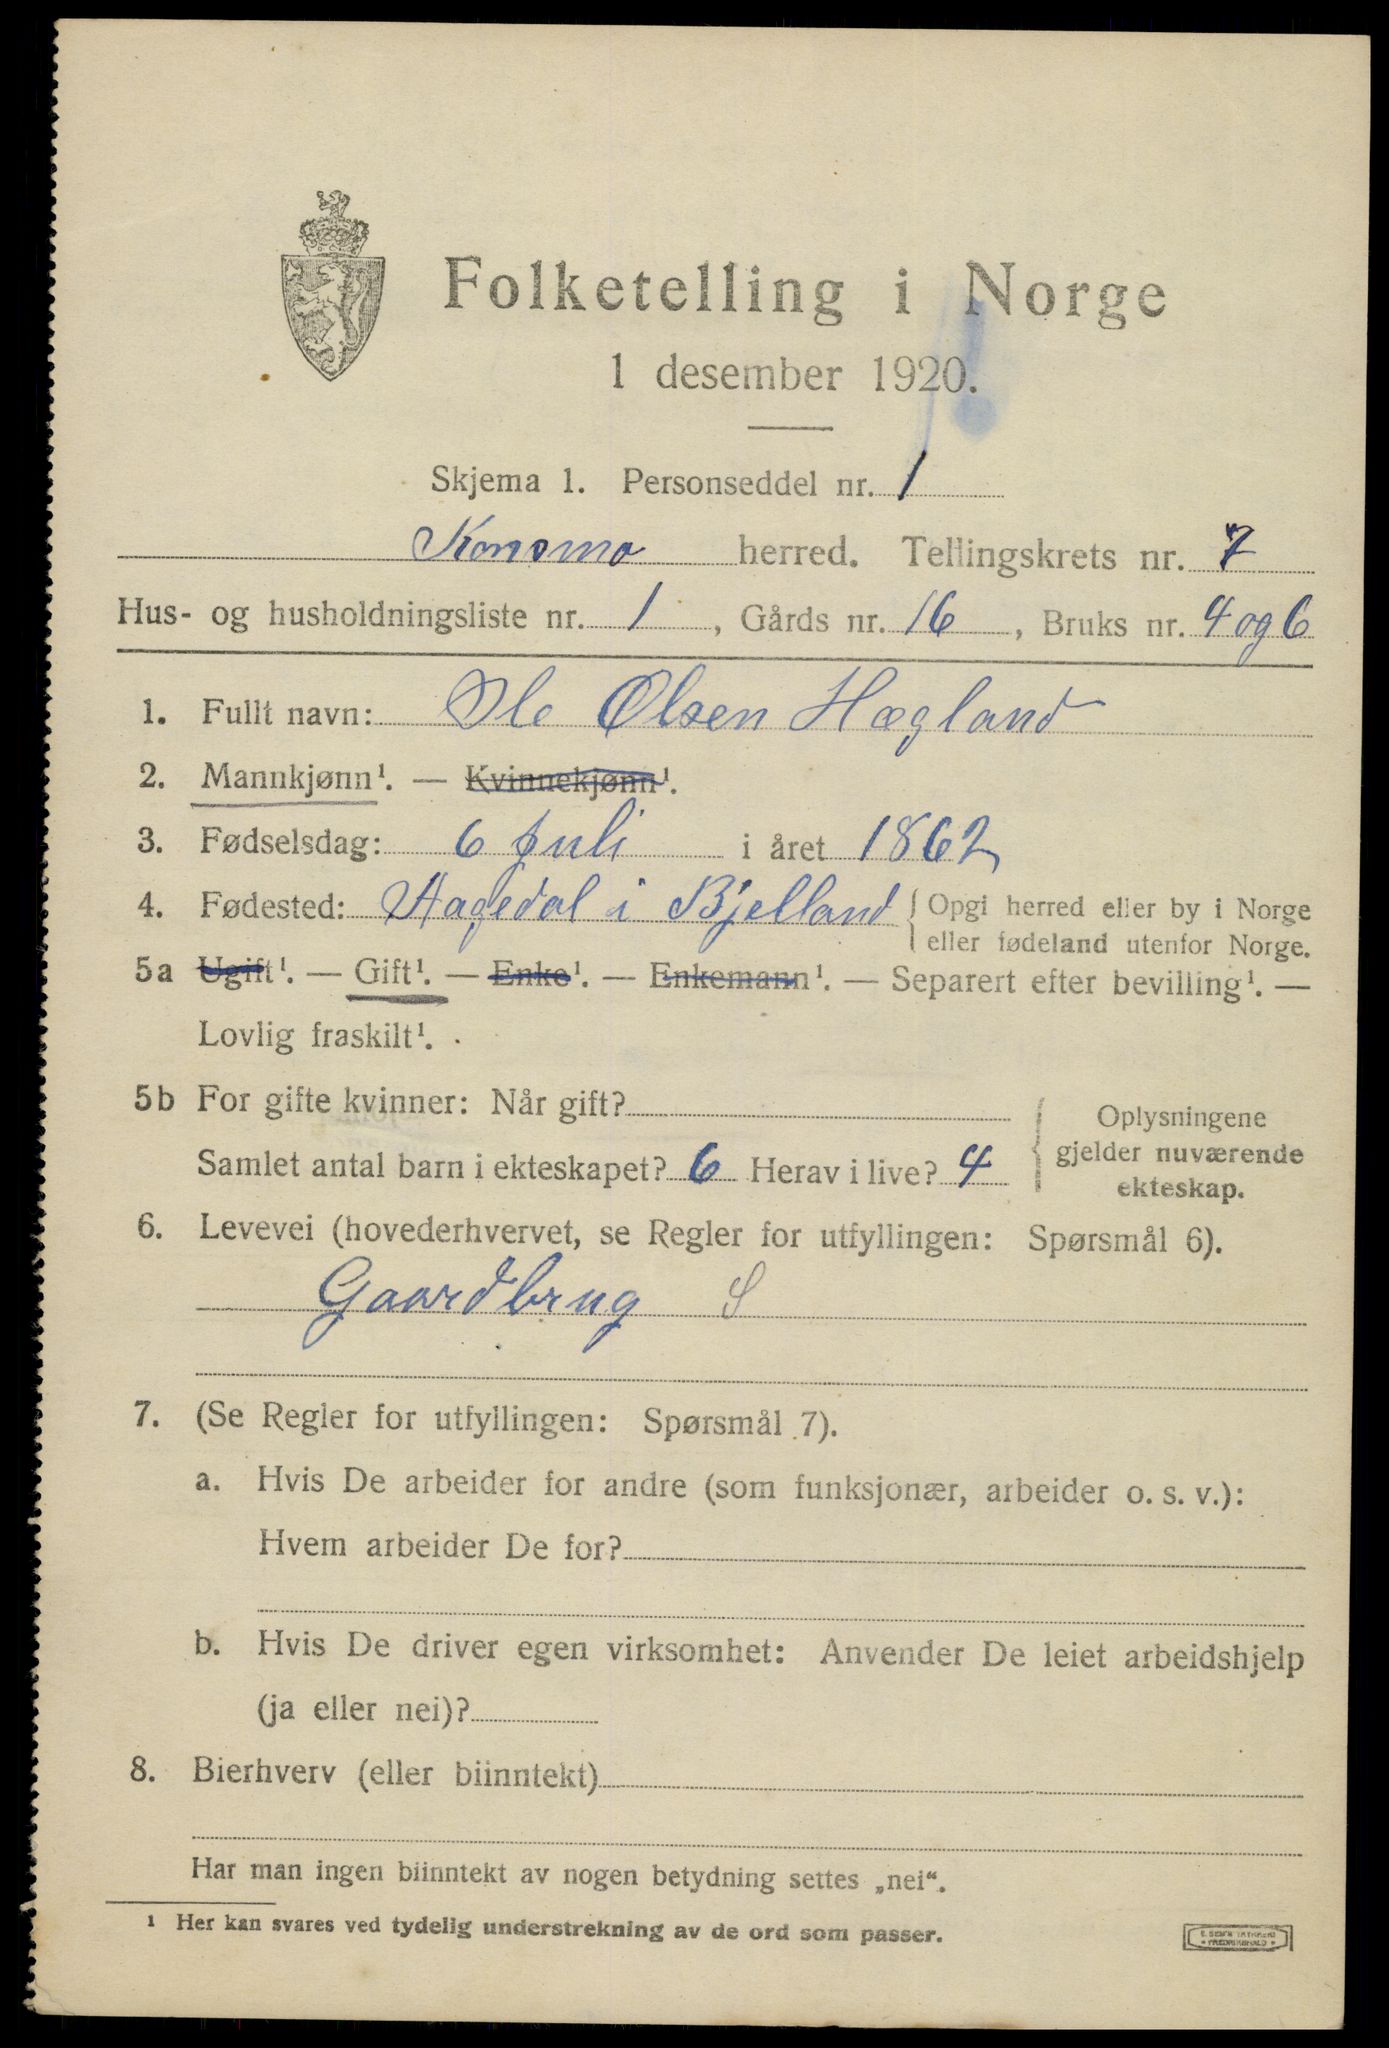 Folketelling i Norge
1 desember 1920.
Skjema 1. Personseddel nr. 1
Konsmo herred. Tellingskrets nr. 7
Hus- og husholdningsliste nr. 1, Gårds nr. 16, Bruks nr. 4 og 6
1. Fullt navn: Ole Olsen Hægland
2. Mannkjønn¹. — Kvinnekjønn¹.
3. Fødselsdag: 6 juli i året 1862
4. Fødested: Hagedal i Bjelland { Opgi herred eller by i Norge
eller fødeland utenfor Norge.
5a Ugift¹. — Gift¹. — Enke¹. — Enkemann¹. — Separert efter bevilling¹. —
Lovlig fraskilt¹.
5b For gifte kvinner: Når gift?
Samlet antal barn i ekteskapet? 6 Herav i live? 4
{ Oplysningene
gjelder nuværende
ekteskap.
6. Levevei (hovederhvervet, se Regler for utfyllingen: Spørsmål 6).
Gaardbrug S
7. (Se Regler for utfyllingen: Spørsmål 7).
a. Hvis De arbeider for andre (som funksjonær, arbeider o. s. v.):
Hvem arbeider De for?
b. Hvis De driver egen virksomhet: Anvender De leiet arbeidshjelp
(ja eller nei)?
8. Bierhverv (eller biinntekt)
Har man ingen biinntekt av nogen betydning settes „nei“.
¹ Her kan svares ved tydelig understrekning av de ord som passer.